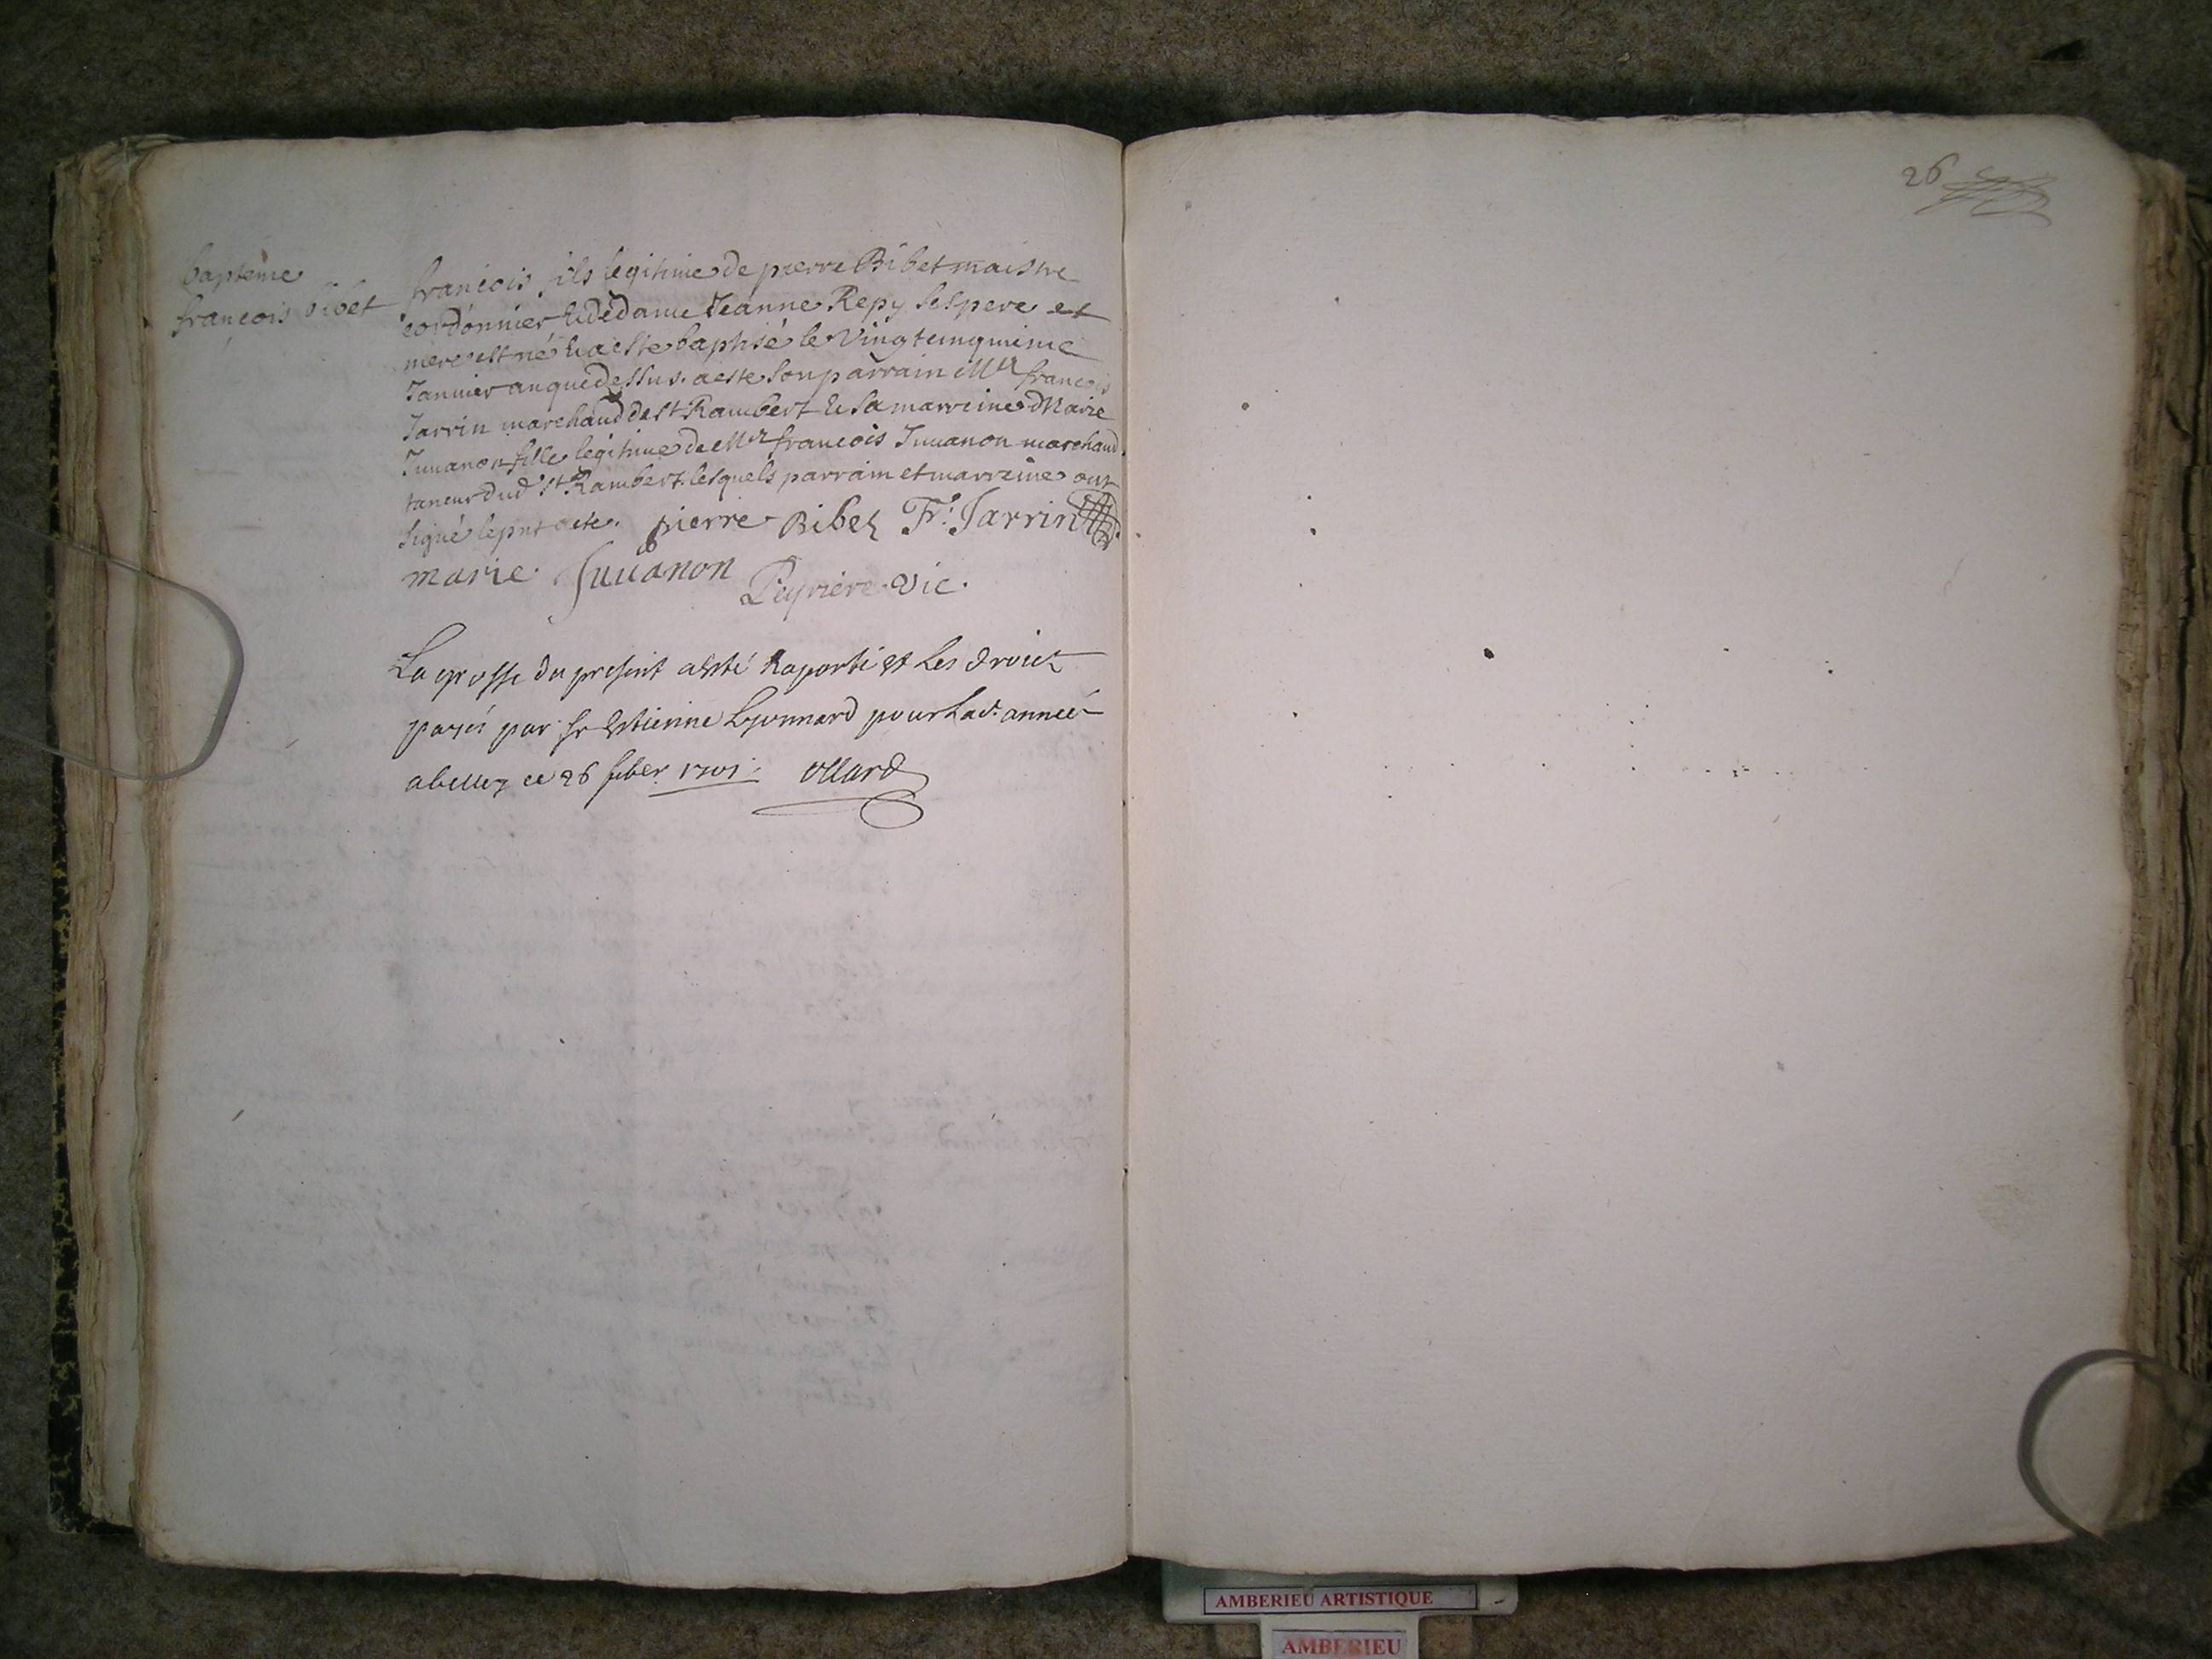 26
bapteme
françois Bibet
francois fils legitime de pierre Bibet maistre
cordonnier & de dame Jeanne Repy ses pere et
mere est né & a esté baptisé le vingt cinquieme
Januier an que dessus. a esté son parrain Mr francois
Jarrin marchand de st Rambert & sa marreine Marie
Juuanon fille legitime de Mr francois Juuanon marchand
taneur dud st Rambert. lesquels parrain et marreine ont
signé le pnt acte. pierre Bibet Fr: Jarrin
marie Juuanon Peyriere vic.
La grosse du present a esté raporté et les droict
payés par sr Estienne Lyonnard pour lad. année
a belley ce 26 1701. ollard
AMBERIEU ARTISTIQUE
AMBERIEU